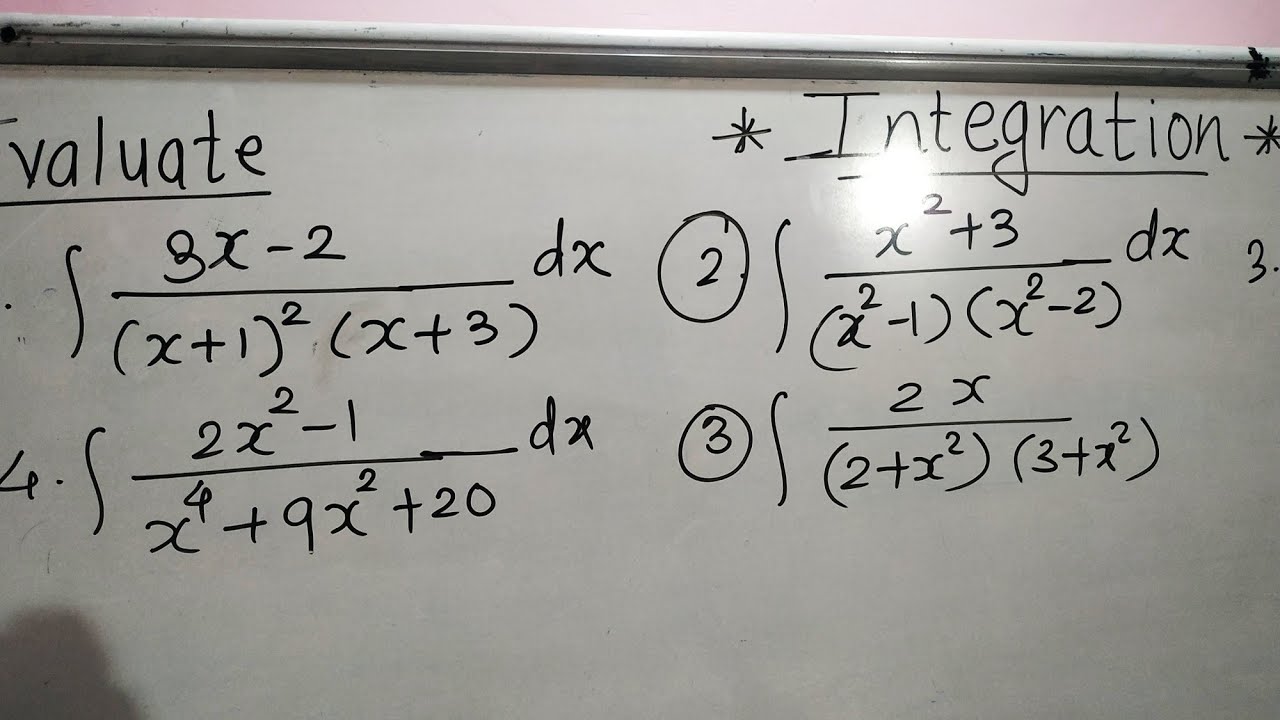 Evaluate * Integration *
. ∫ 3x-2 / (x+1)² (x+3) dx ② ∫ x²+3 / (x²-1) (x²-2) dx 3.
4. ∫ 2x²-1 / x⁴+9x²+20 dx ③ ∫ 2x / (2+x²) (3+x²)